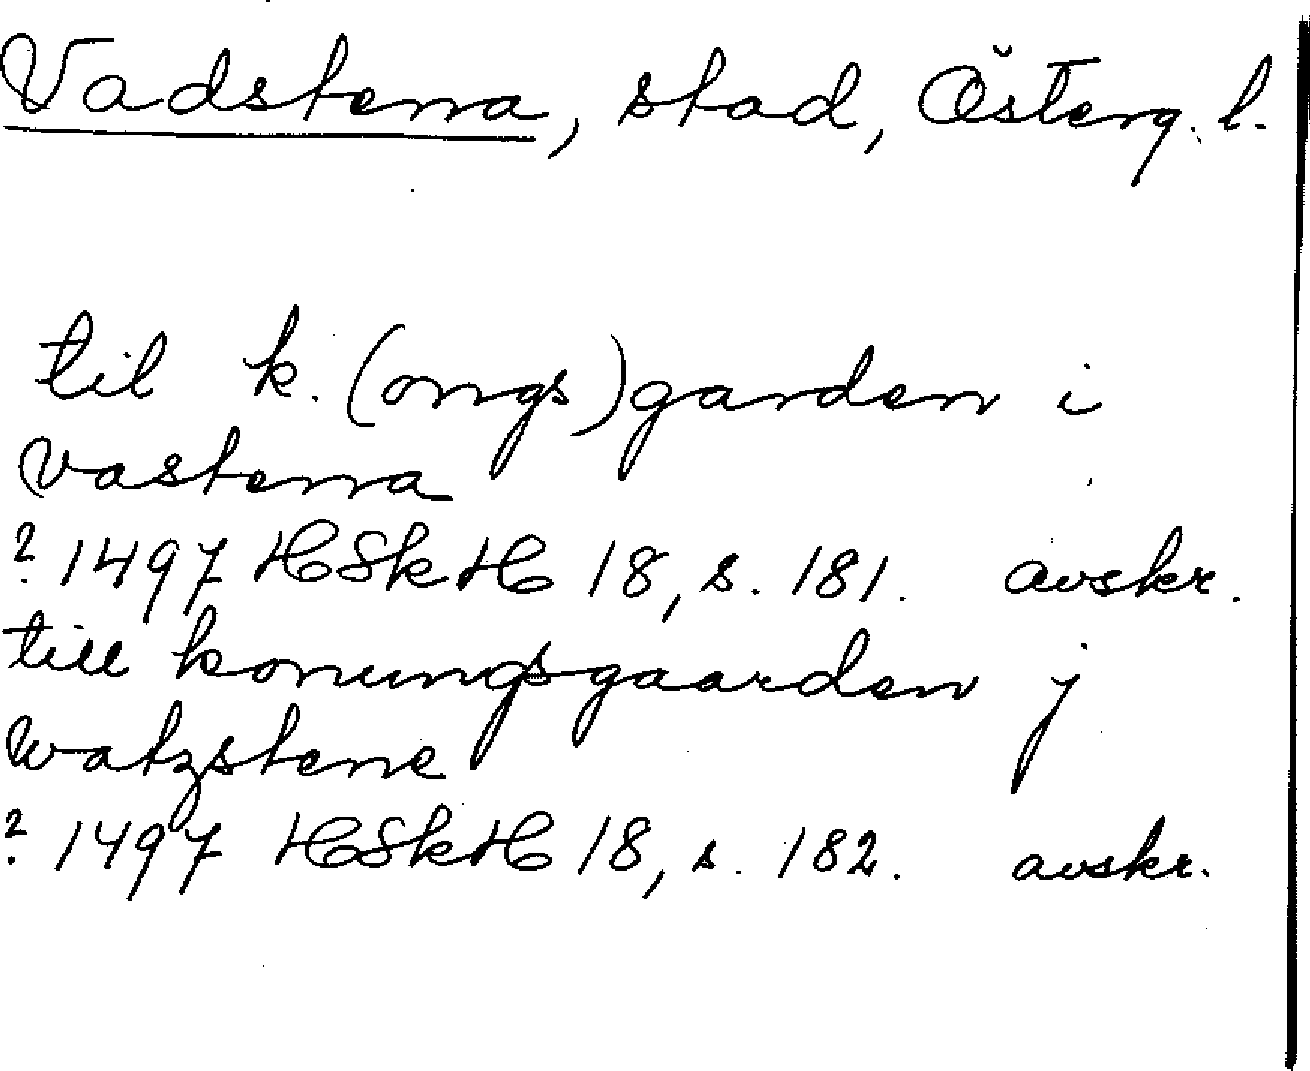 Vadstena, stad, Österg. l.
til k. (ongs)garden i
vastena
? 1497 HSkH 18, s. 181. avskr.
till konungsgaarden j
watzstene
? 1497 HSkH 18, s. 182. avskr.